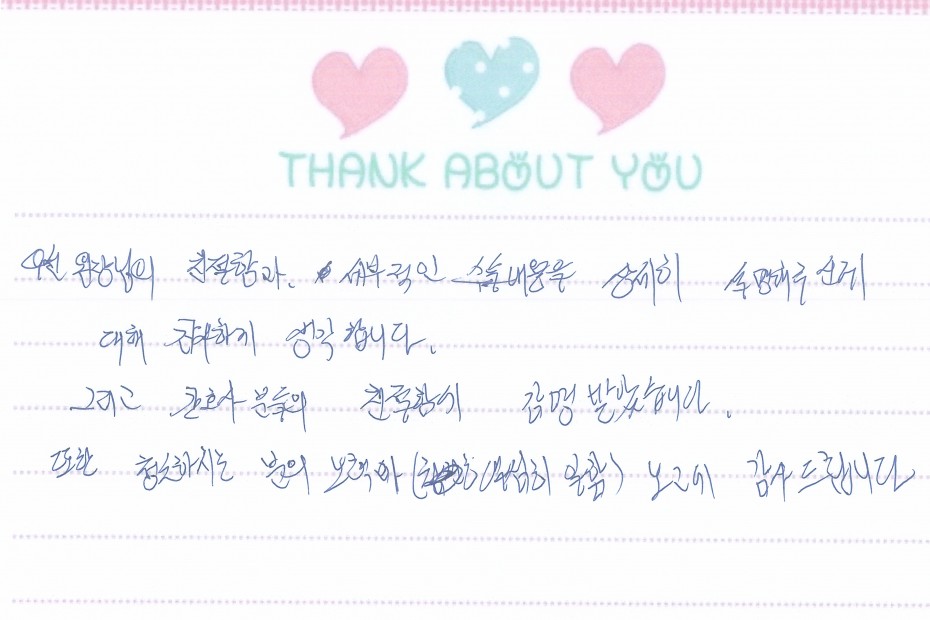 THANK ABOUT YOU
원장님의 친절함과. 세부적인 수술내용을 상세히 설명해주신게
대해 감사하게 생각합니다.
그리고 간호사분들의 친절함에 감명 받았습니다.
또한 청소하시는 분의 노력과 (열심히 일함) 노고에 감사드립니다